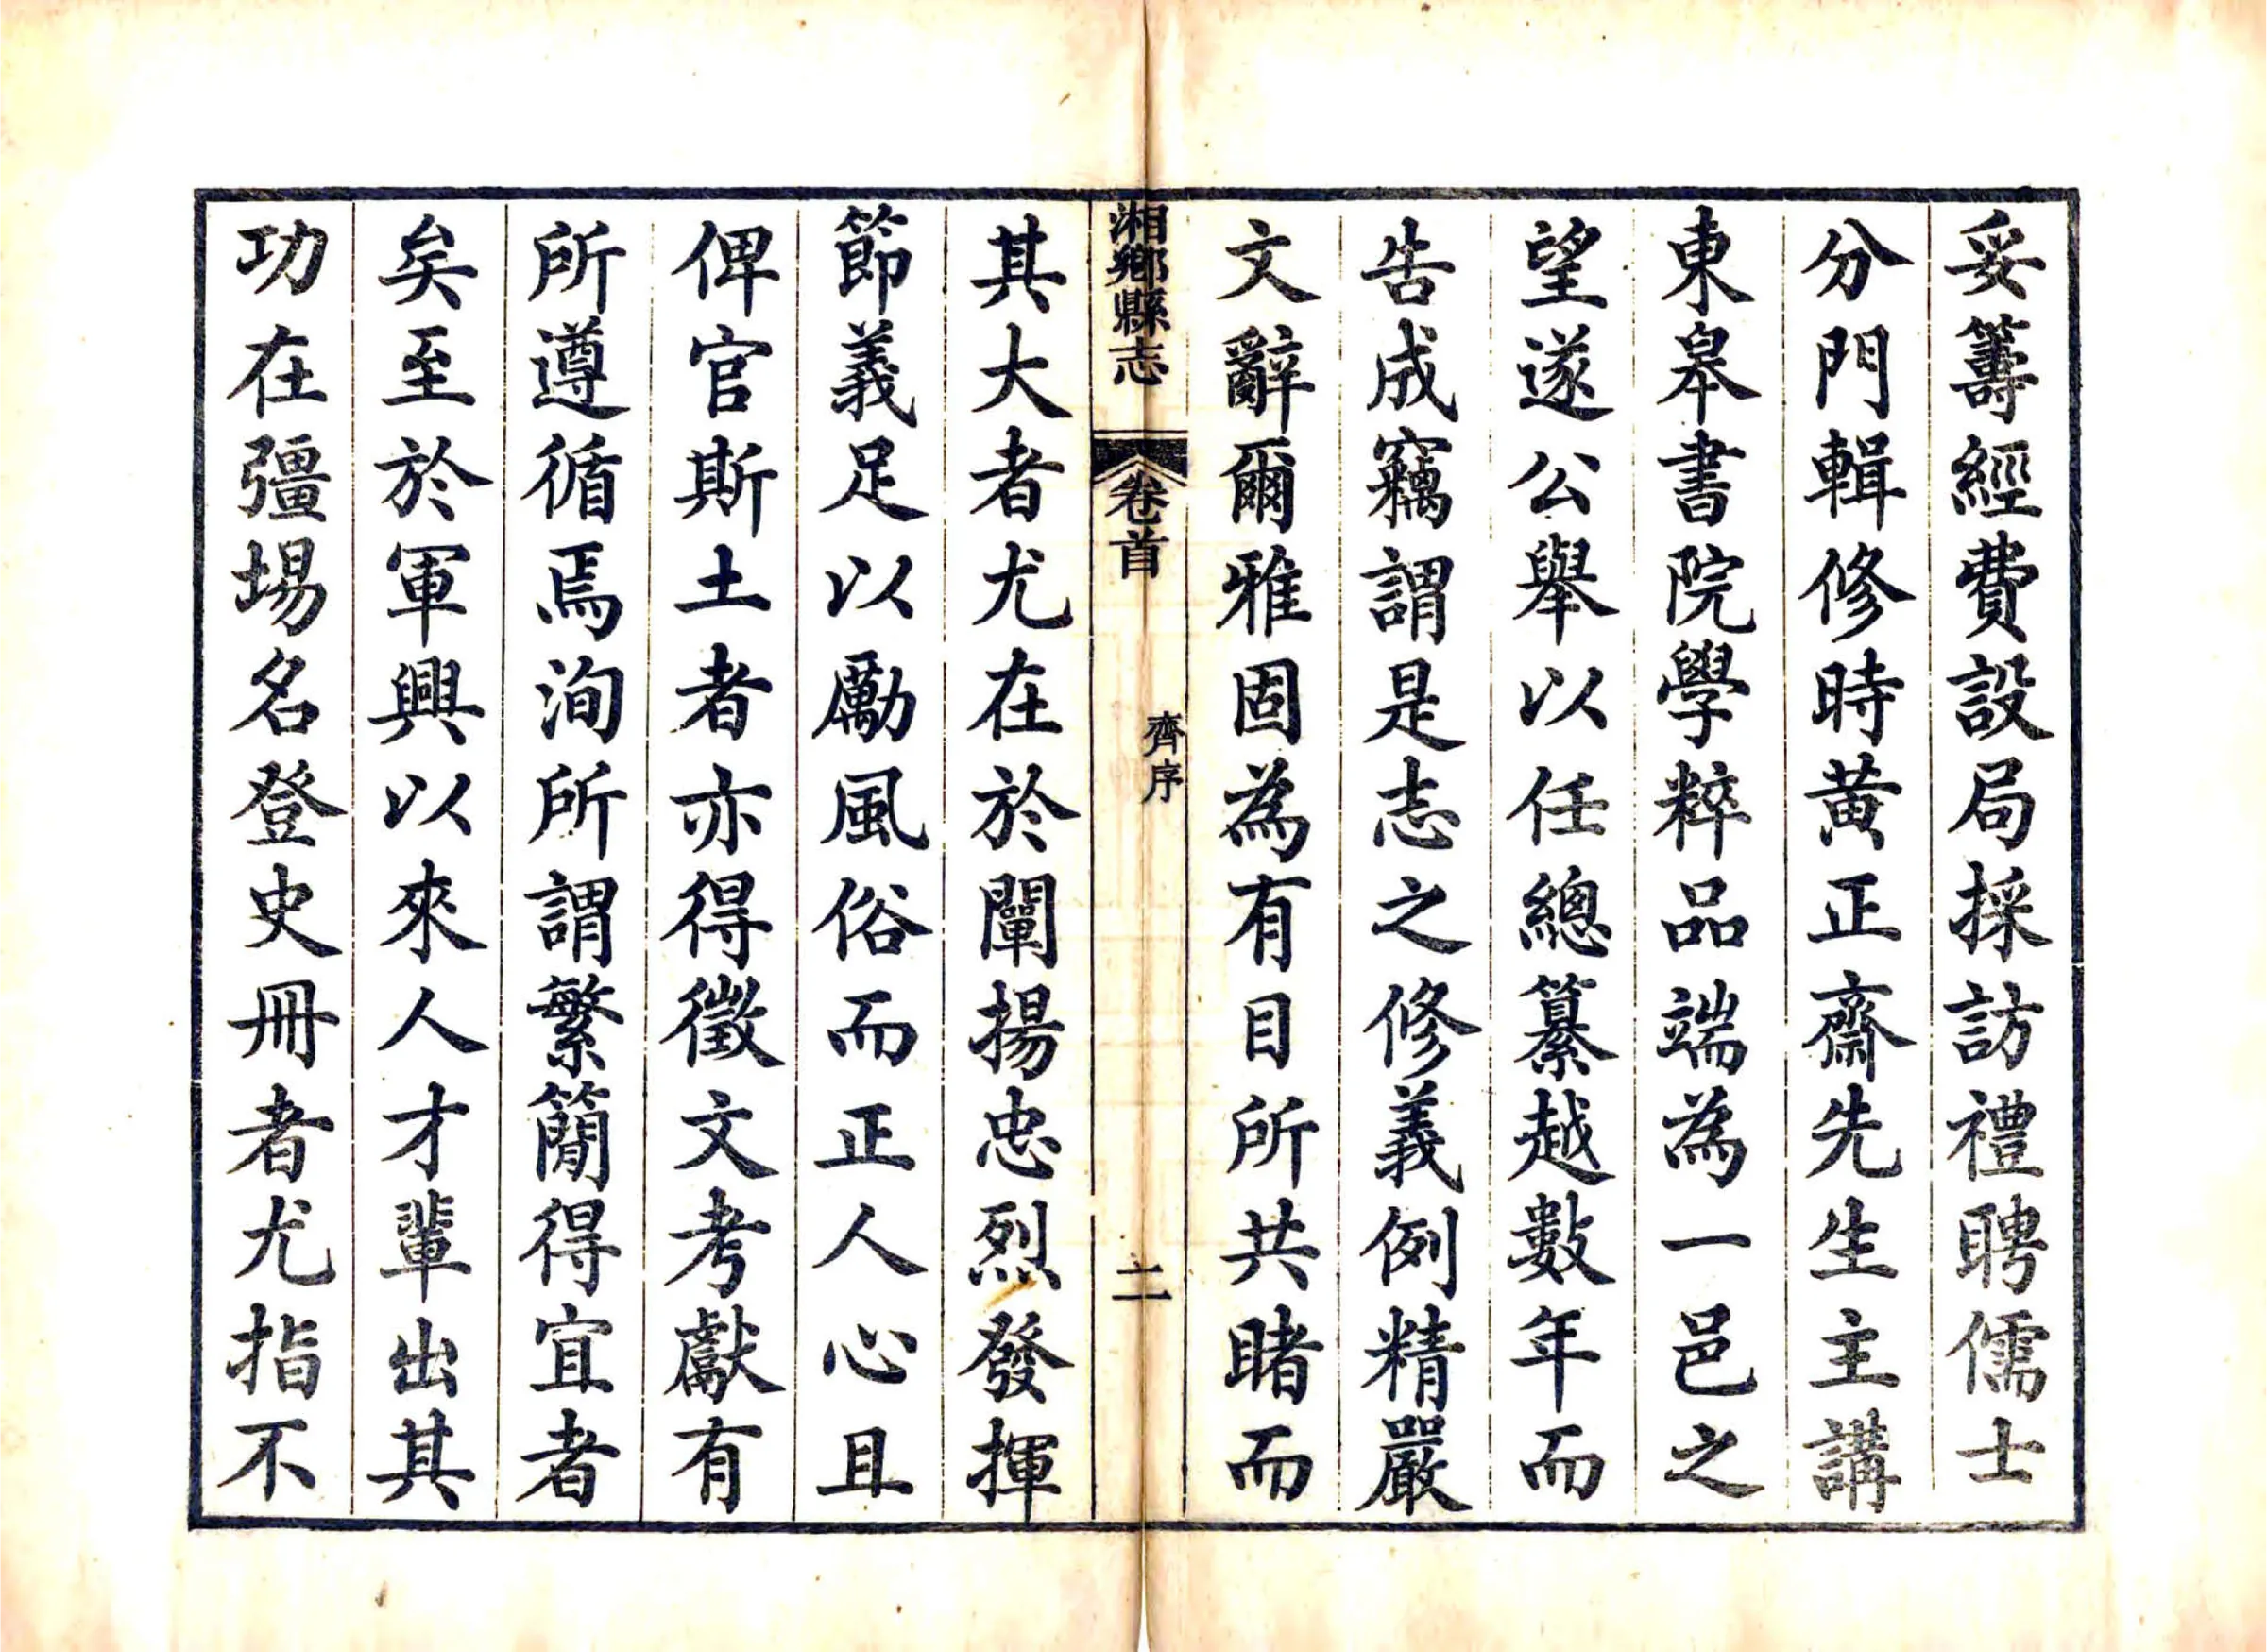 妥籌經費設局採訪禮聘儒士
分門輯修時黃正齋先生主講
東皋書院學粹品端為一邑之
望遂公舉以任總纂越數年而
告成竊謂是志之修義例精嚴
文辭爾雅固為有目所共睹而
湘鄉縣志
卷首
齊序
二
其大者尤在於闡揚忠烈發揮
節義足以勵風俗而正人心且
俾官斯土者亦得徵文考獻有
所遵循焉洵所謂繁簡得宜者
矣至於軍興以來人才輩出其
功在彊場名登史冊者尤指不